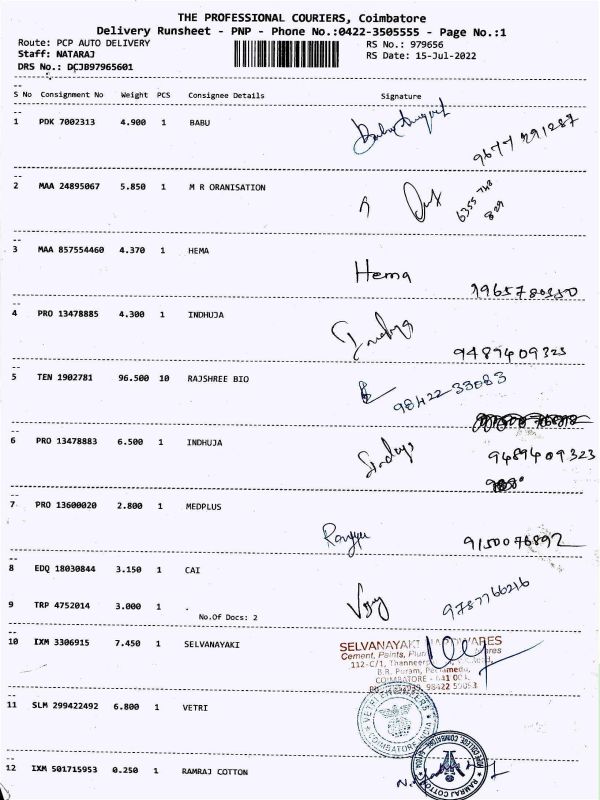 THE PROFESSIONAL COURIERS, Coimbatore
Delivery Runsheet - PNP - Phone No.:0422-3505555 - Page No.:1
Route: PCP AUTO DELIVERY RS No.: 979656
Staff: NATARAJ RS Date: 15-Jul-2022
DRS No.: DCJB97965601
S No Consignment No Weight PCS Consignee Details Signature
1 PDK 7002313 4.900 1 BABU
9677 291287
2 MAA 24895067 5.850 1 M R ORANISATION
6355 748
829
3 MAA 857554460 4.370 1 HEMA
Hema
9965780350
4 PRO 13478885 4.300 1 INDHUJA
Induja
9489409323
5 TEN 1902781 96.500 10 RAJSHREE BIO
98422-33083
6 PRO 13478883 6.500 1 INDHUJA
Induja 9489409323
7 PRO 13600020 2.800 1 MEDPLUS
9150076892
8 EDQ 18030844 3.150 1 CAI
Vijay 9787766216
9 TRP 4752014 3.000 1 .
No.Of Docs: 2
10 IXM 3306915 7.450 1 SELVANAYAKI
SELVANAYAKI HARDWARES
Cement, Paints,
112-C/1,
B.R. Puram,
COIMBATORE - 641 004.
98422
11 SLM 299422492 6.800 1 VETRI
VETRI
COIMBATORE
12 IXM 501715953 0.250 1 RAMRAJ COTTON
RAMRAJ COTTON